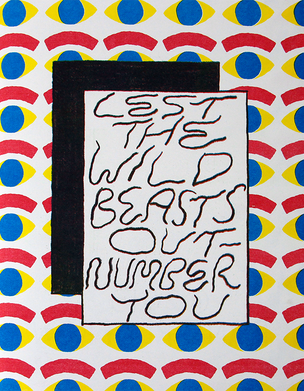 LEST
THE
WILD
BEASTS
OUT-
NUMBER
YOU